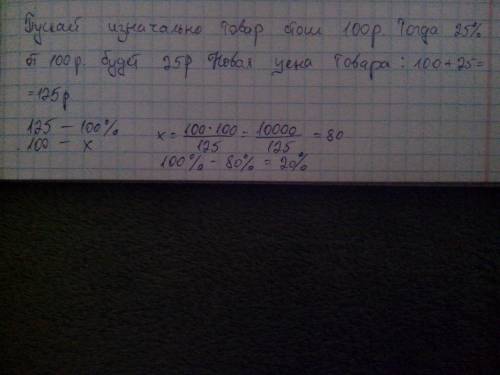 Пускай изначально товар стоил 100р. Тогда 25%
от 100р. будет 25р Новая цена товара: 100+25=
=125р
125 – 100%
100 – x
x = 100·100/125 = 10000/125 = 80
100% – 80% = 20%